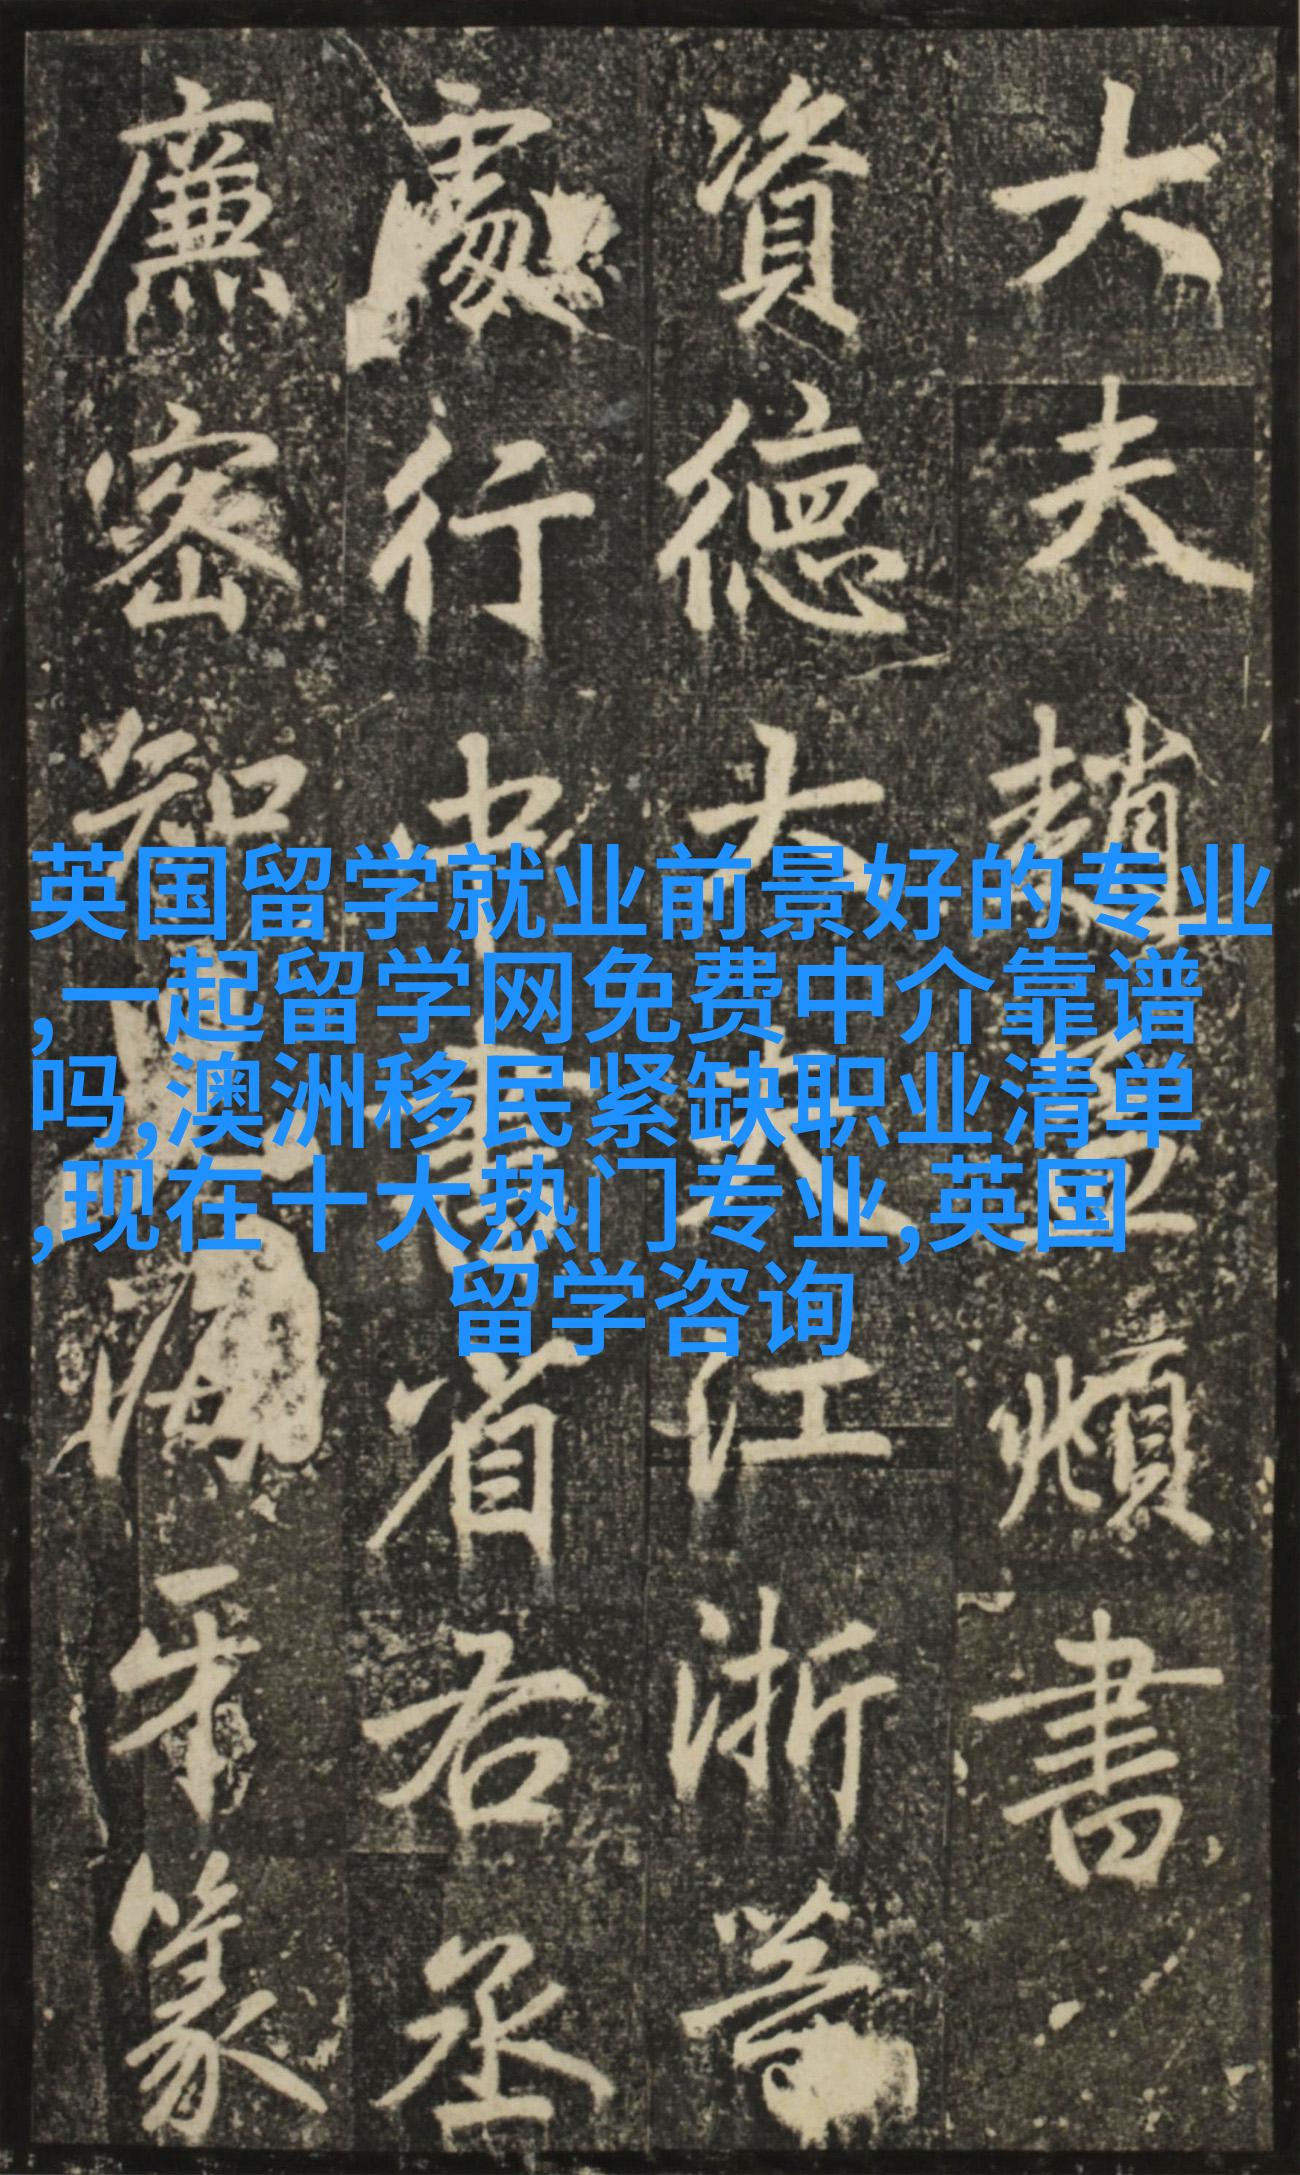 大夫趙孟頫書
資德大夫江浙等
處行中書省右丞
廉密知児海牙篆
英国留学就业前景好的专业
,一起留学网免费中介靠谱
吗,澳洲移民紧缺职业清单
,现在十大热门专业,英国
留学咨询